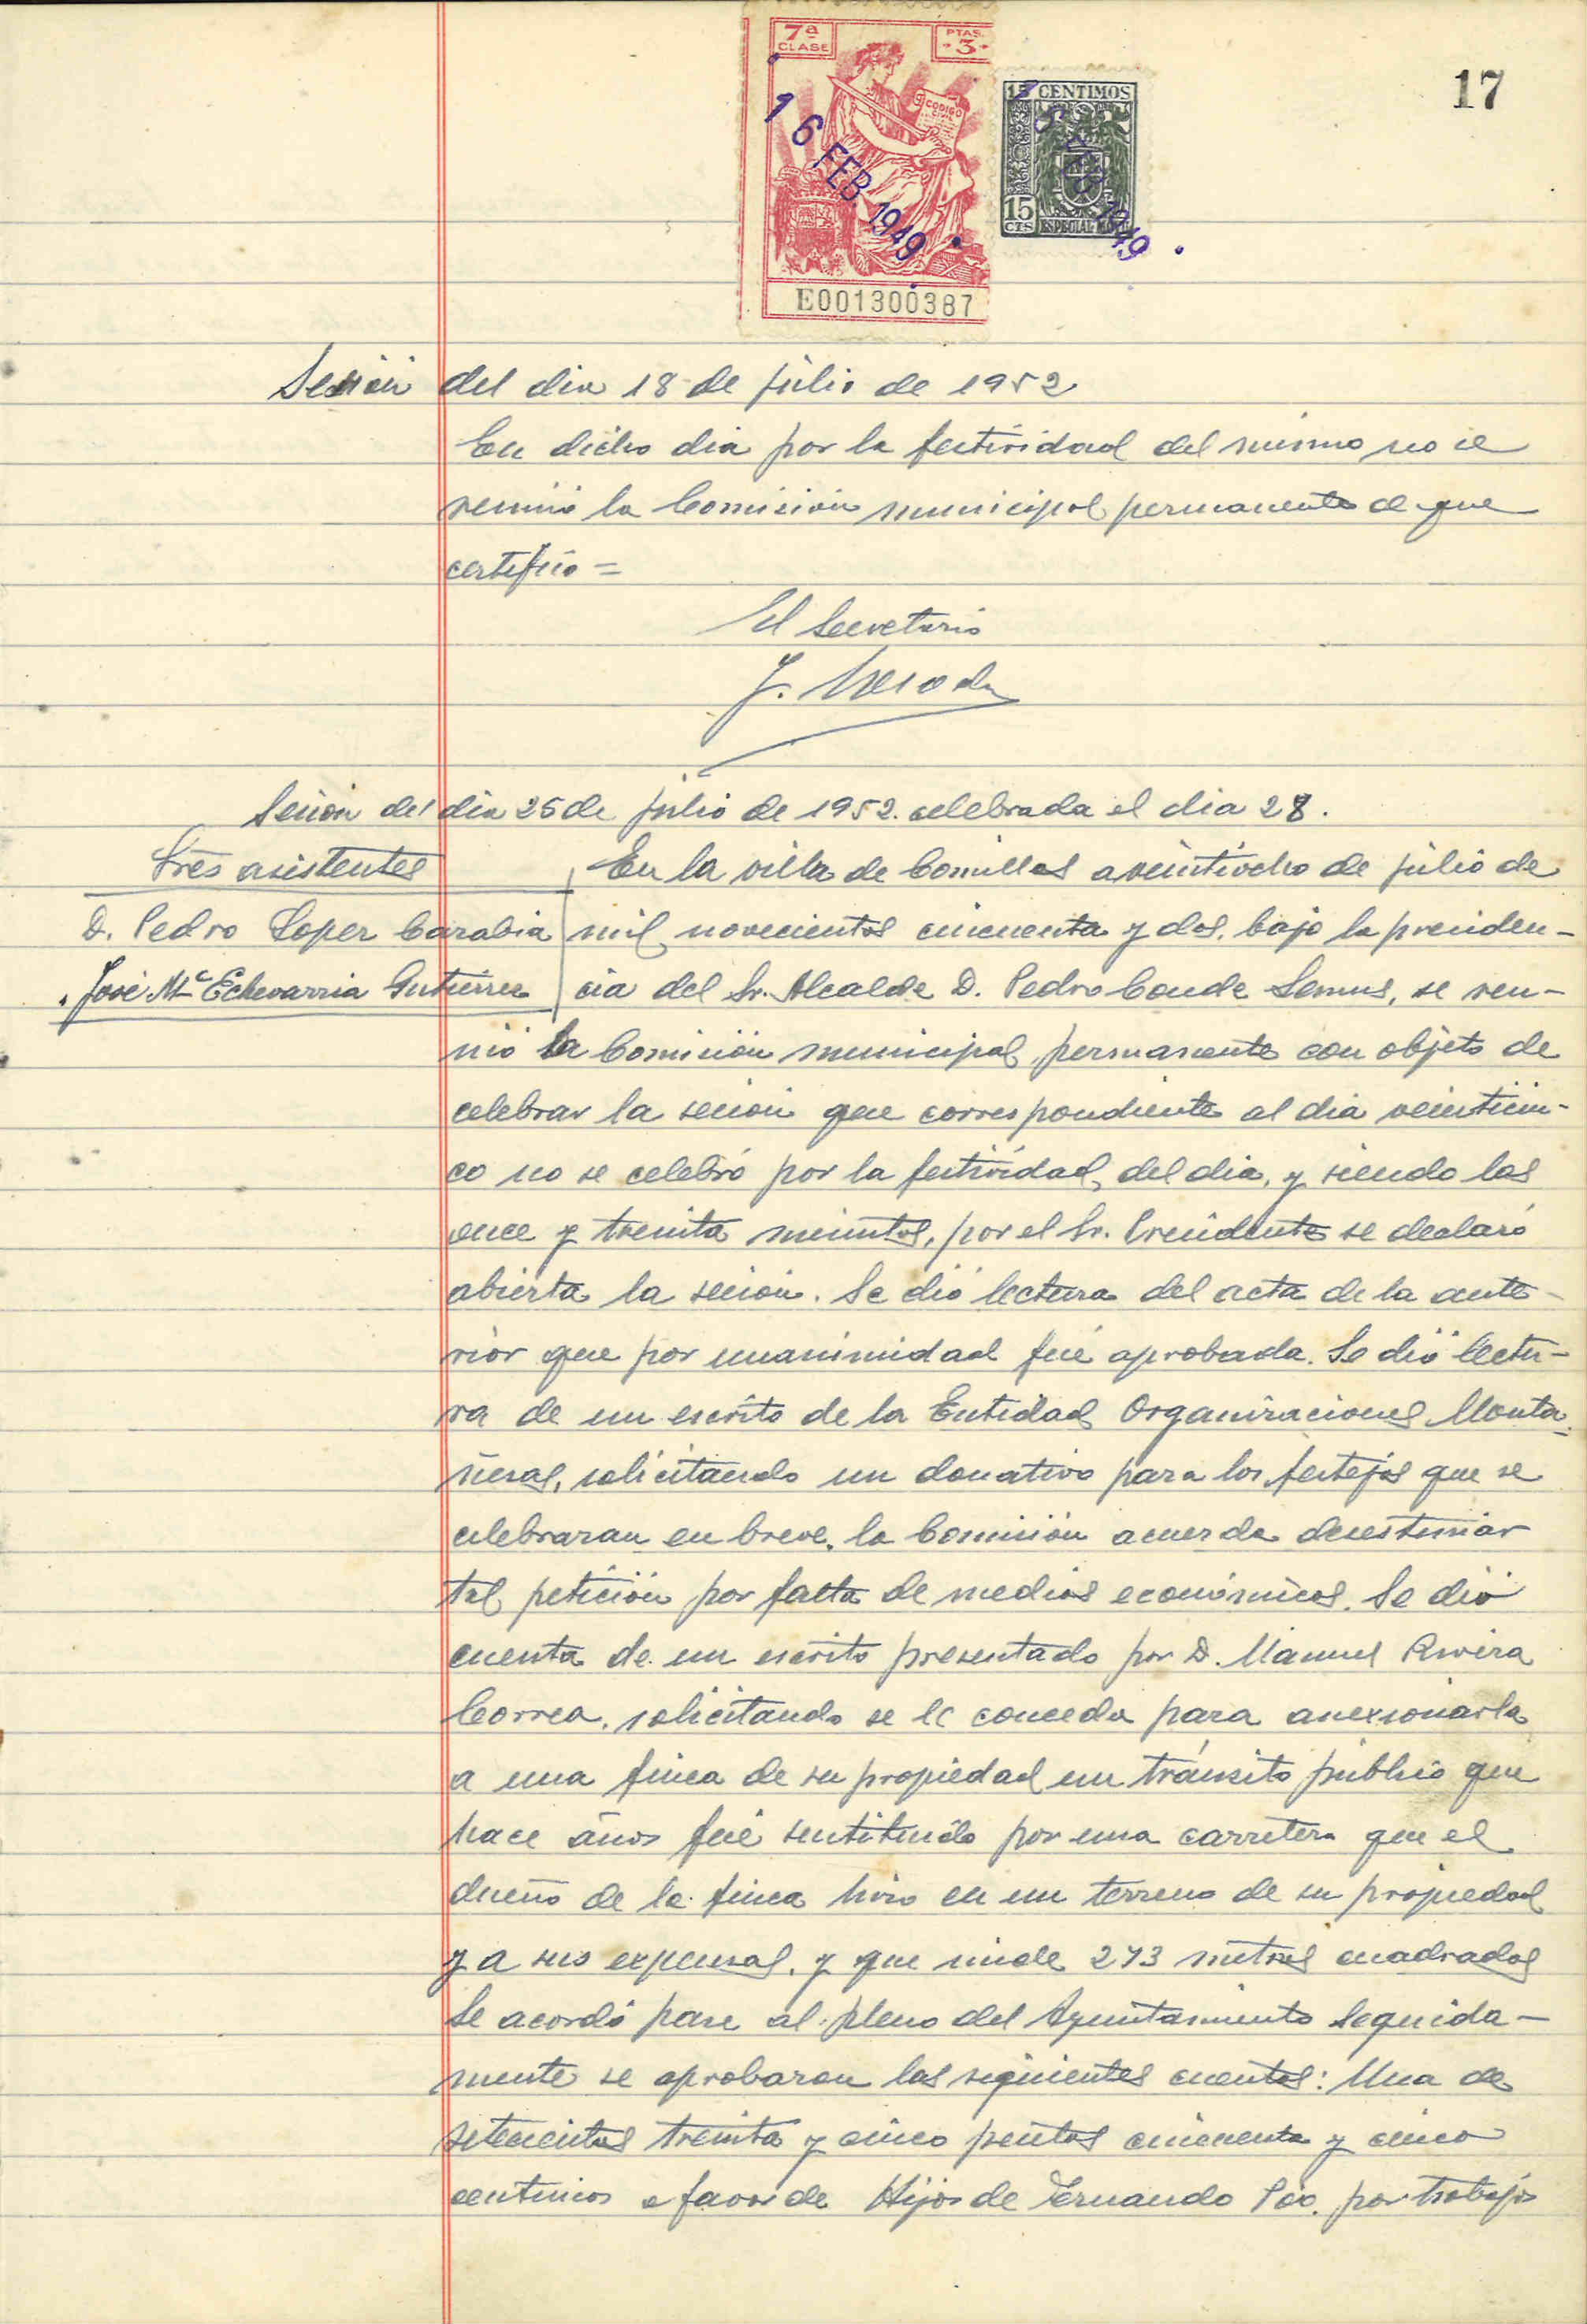 7ª CLASE
PTAS. 3
CODIGO CIVIL
16 FEB. 1949
E001300387
15 CENTIMOS
15 CTS
ESPECIAL MOVIL
FEB 1949
17
Sesión del dia 18 de julio de 1952
En dicho dia por la festividad del mismo no se
reunió la Comisión municipal permanente de que
certifico =
El Secretario
Sesión del dia 25 de julio de 1952. celebrada el dia 28.
Sres asistentes
D. Pedro Lopez Carabia
" José Mª Echevarria Gutierrez
En la villa de Comillas a veintiocho de julio de
mil novecientos cincuenta y dos, bajo la presiden-
cia del Sr. Alcalde D. Pedro Conde Lemus, se reu-
nió la Comisión municipal permanente con objeto de
celebrar la sesion que correspondiente al dia veinticin-
co no se celebró por la festividad del dia, y siendo las
once y treinta minutos, por el Sr. Presidente se declaró
abierta la sesión. Se dió lectura del acta de la ante-
rior que por unanimidad fué aprobada. Se dió lectu-
ra de un escrito de la Entidad Organizaciones Monta-
ñesas, solicitando un donativo para los festejos que se
celebraran en breve, la Comisión acuerda desestimar
tal petición por falta de medios económicos. Se dió
cuenta de un escrito presentado por D. Manuel Rivera
Correa, solicitando se le conceda para anexionarla
a una finca de su propiedad un tránsito público que
hace años fué sustituido por una carretera que el
dueño de la finca hizo en un terreno de su propiedad
y a sus expensas, y que mide 273 metros cuadrados
Se acordó pase al pleno del Ayuntamiento Seguida-
mente se aprobaron las siguientes cuentas: Una de
setecientas treinta y cinco pesetas cincuenta y cinco
centimos a favor de Hijos de Fernando Pío. por trabajos